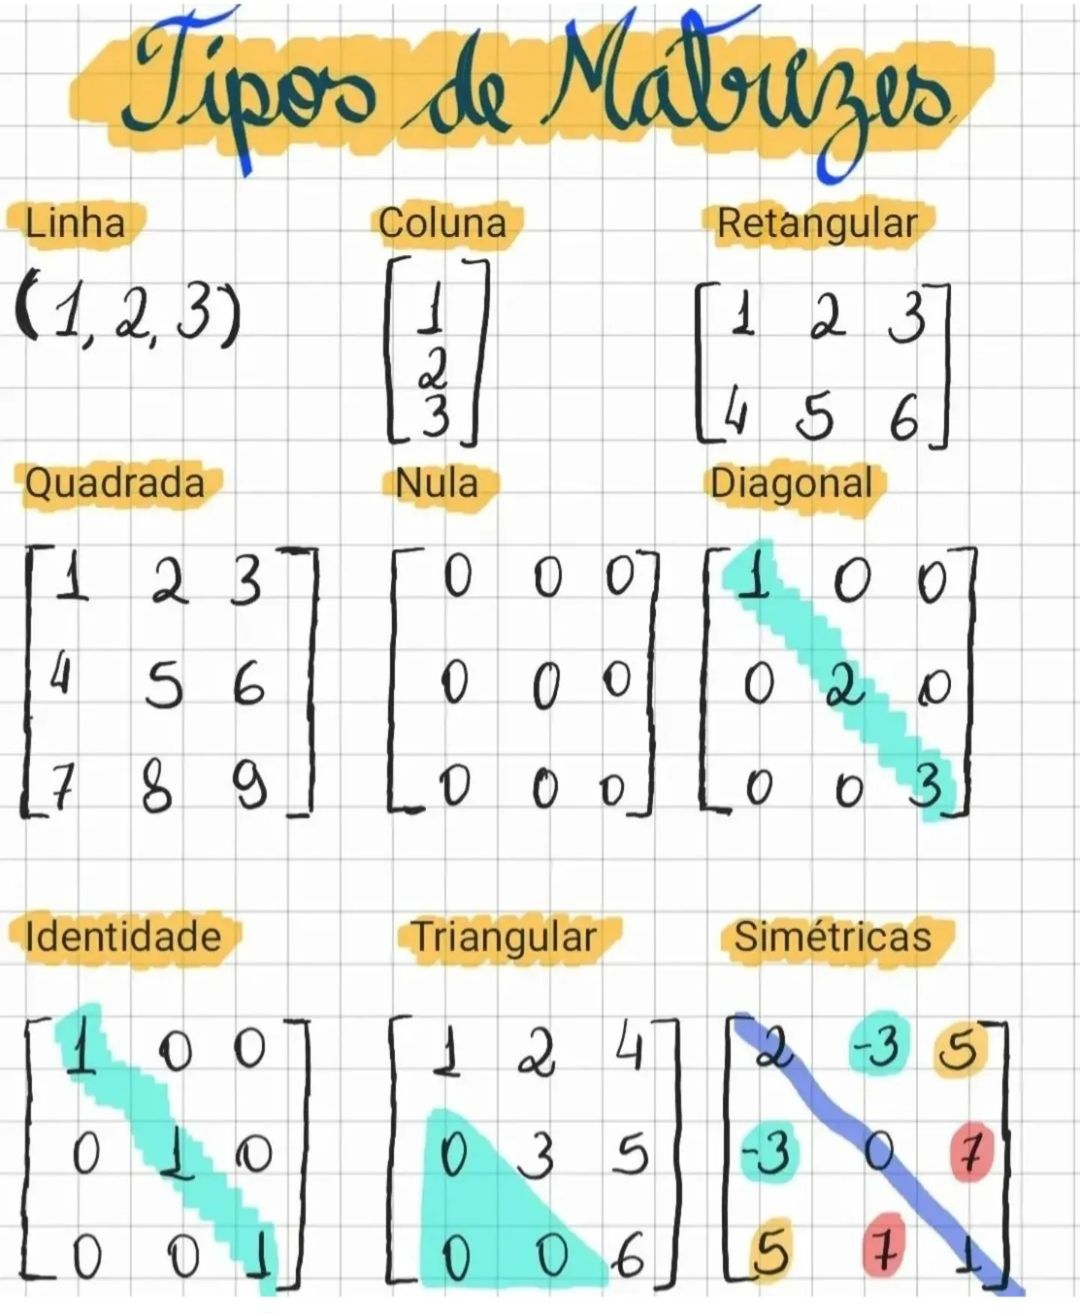 Tipos de Matrizes
Linha
(1, 2, 3)
Coluna
1
2
3
Retangular
1 2 3
4 5 6
Quadrada
1 2 3
4 5 6
7 8 9
Nula
0 0 0
0 0 0
0 0 0
Diagonal
1 0 0
0 2 0
0 0 3
Identidade
1 0 0
0 1 0
0 0 1
Triangular
1 2 4
0 3 5
0 0 6
Simétricas
2 -3 5
-3 0 7
5 7 1